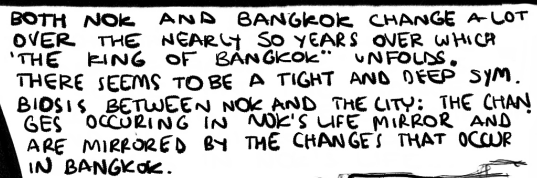 BOTH NOK AND BANGKOK CHANGE A LOT
OVER THE NEARLY 50 YEARS OVER WHICH
"THE KING OF BANGKOK" UNFOLDS.
THERE SEEMS TO BE A TIGHT AND DEEP SYM.
BIOSIS BETWEEN NOK AND THE CITY: THE CHAN
GES OCCURING IN NOK'S LIFE MIRROR AND
ARE MIRRORED BY THE CHANGES THAT OCCUR
IN BANGKOK.